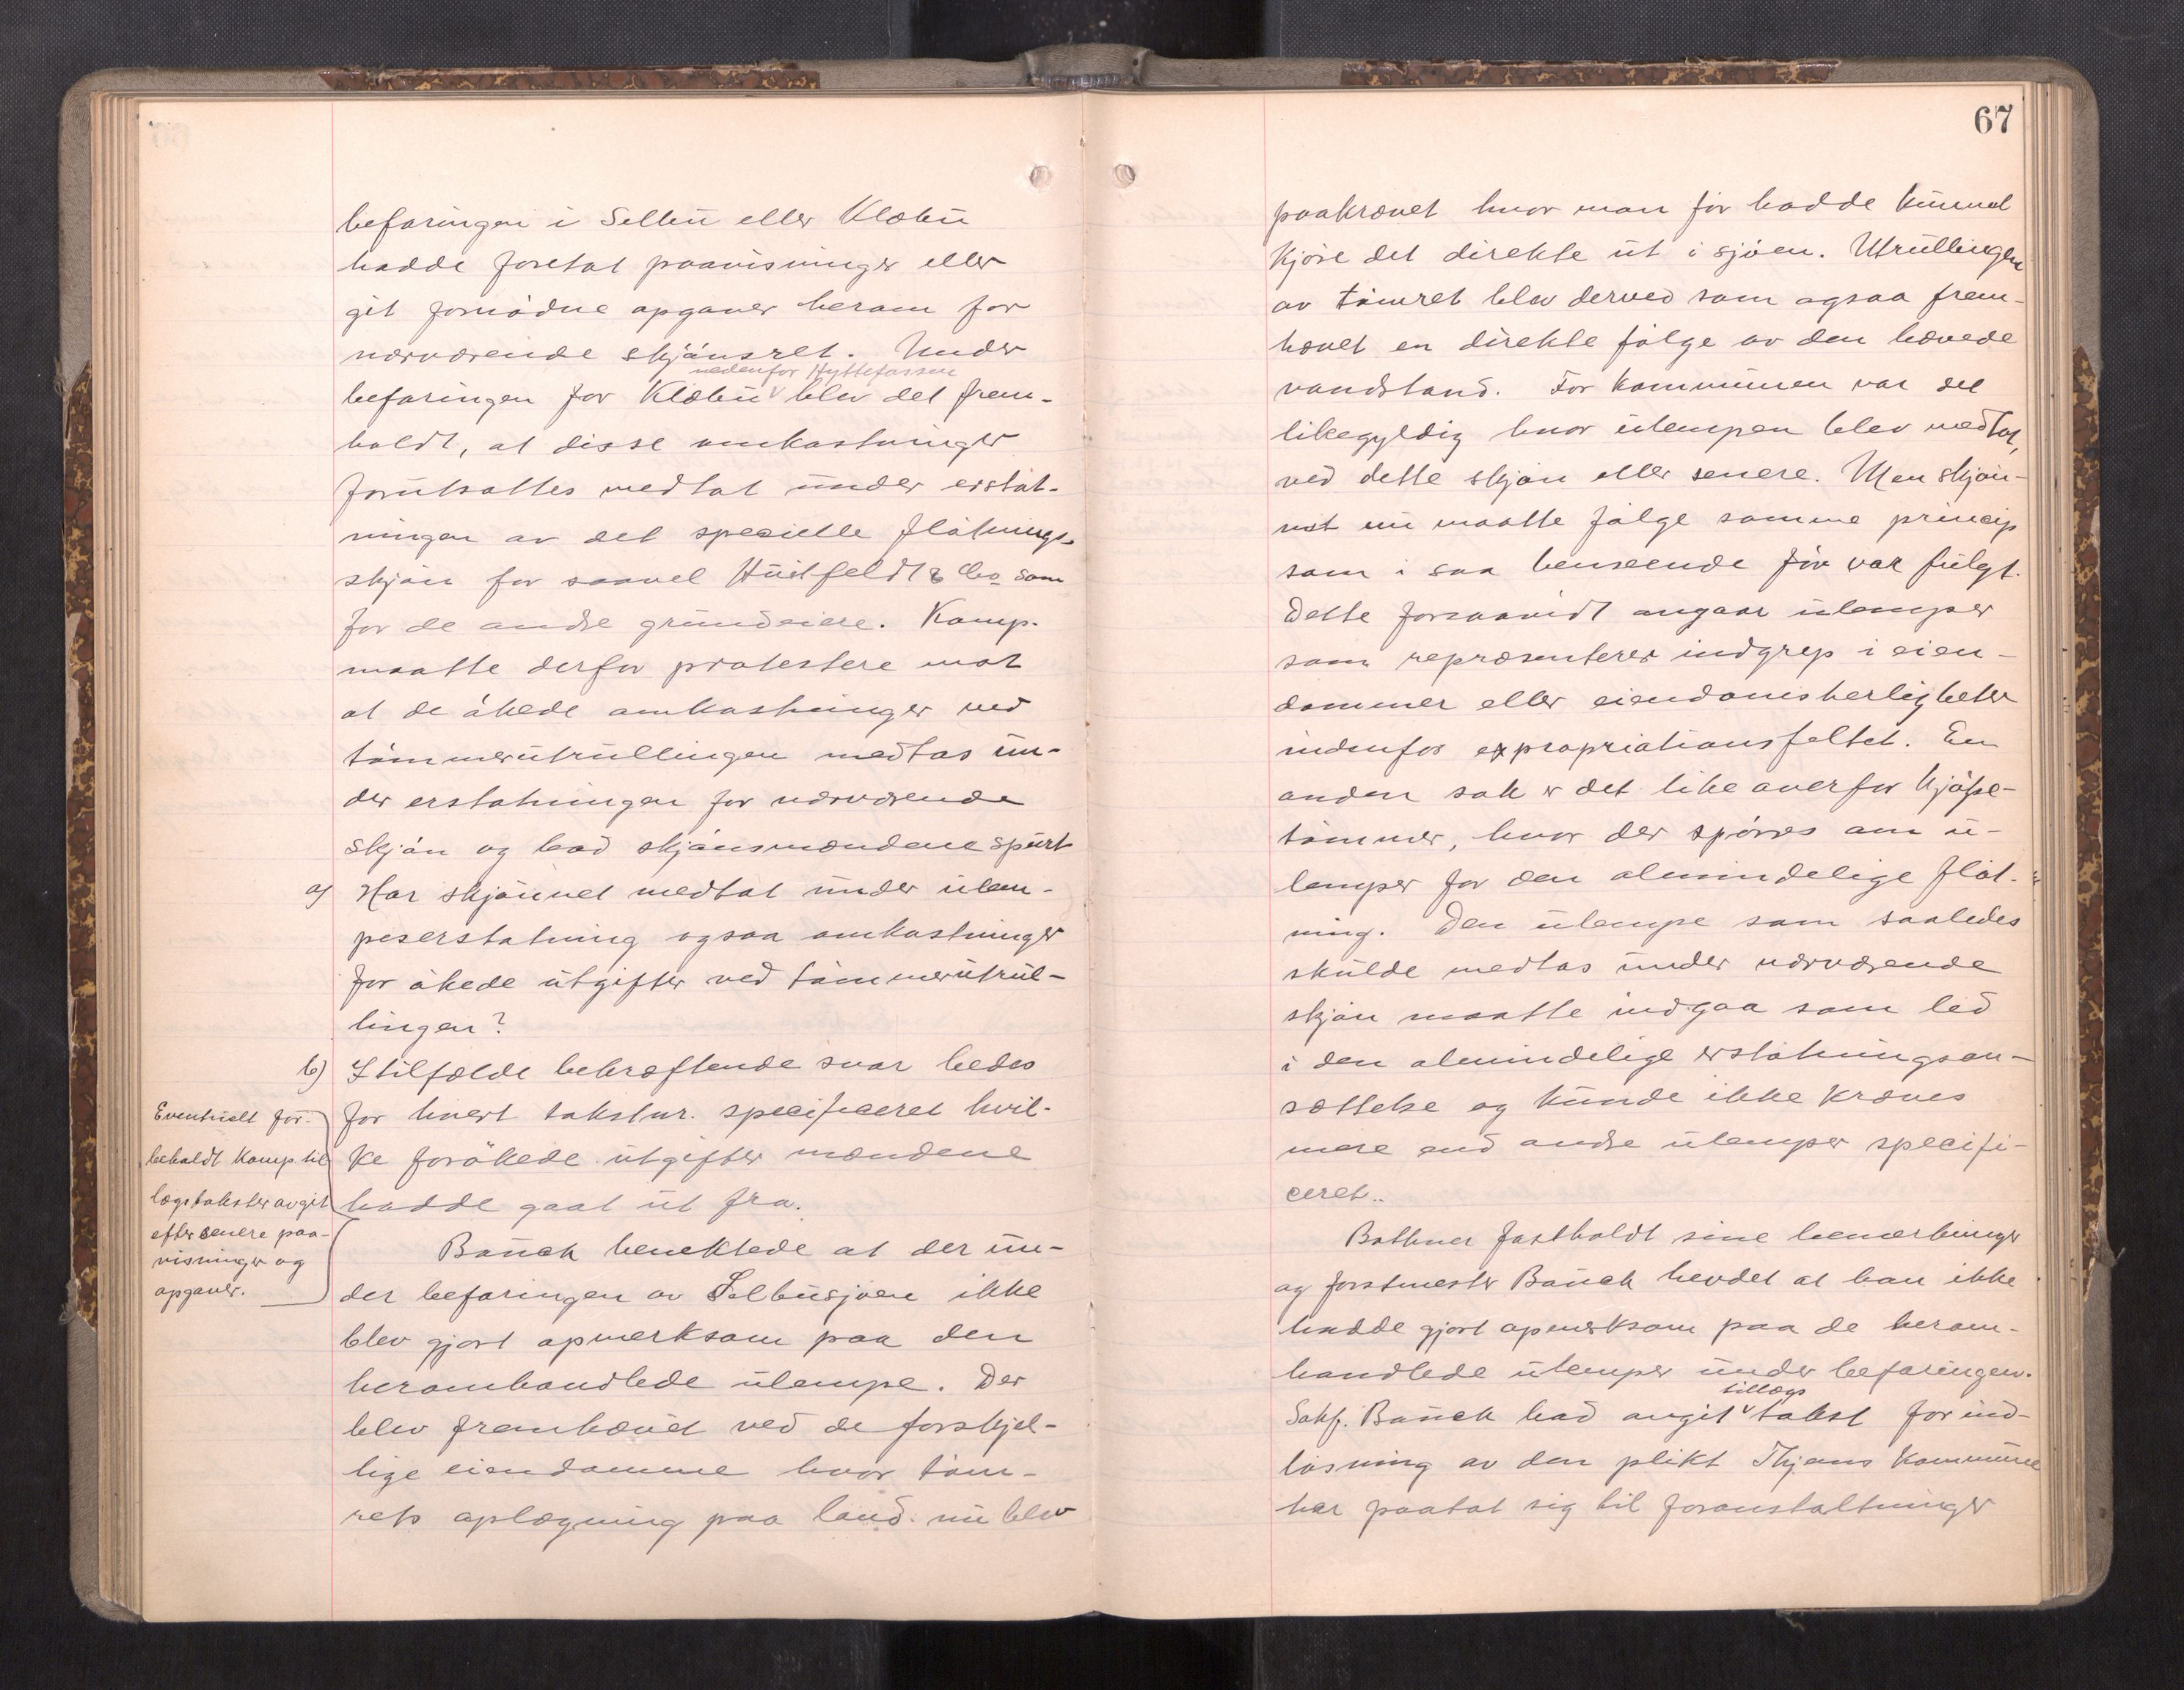 befaringen i Selbu eller Klæbu
hadde foretat paavisninger eller
git fornødne opgaver herom for
nærværende skjønsret. Under
nedenfor Hyttefossen
befaringen for Klæbu v blev det frem-
holdt, at disse omkostninger
forutsattes medtat under erstat-
ningen av det specielle fløtnings-
skjøn for saavel Huitfeldt & Co som
for de andre grundeiere. Komp.
maatte derfor protestere mot
at de økede omkostninger ved
tømmerutrullingen medtas un-
der erstatningen for nærværende
skjøn og bad skjønsmændene spurt
a) Har skjønnet medtat under ulem-
peserstatning ogsaa omkostninger
for økede utgifter ved tømmerutrul-
lingen?
b) I tilfælde bekræftende svar bedes
for hvert takstnr. specificeret hvil-
ke forøkede utgifter mændene
hadde gaat ut fra.
Eventuelt for-
beholdt Komp. til
lægstakster avgit
efter senere paa-
visninger og
opgaver.
Bauck benektede at der un-
der befaringen av Selbusjøen ikke
blev gjort opmerksom paa den
heromhandlede ulempe. Der
blev fremhævet ved de forskjel-
lige eiendomme hvor tøm-
rets oplægning paa land nu blev
67
paakrævet hvor man før hadde kunnet
kjøre det direkte ut i sjøen. Utrullingen
av tømret blev derved som ogsaa frem-
hævet en direkte følge av den hævede
vandstand. For kommunen var det
likegyldig hvor ulempen blev medtat,
ved dette skjøn eller senere. Men skjøn-
net nu maatte følge samme princip
som i saa henseende før var fulgt.
Dette forsaavidt angaar ulemper
som repræsenterer indgrep i eien-
dommer eller eiendomsherligheter
indenfor expropriationsfeltet. En
anden sak er det like overfor kjøpe-
tømmer, hvor der spørres om u-
lemper for den almindelige fløt-
ning. Den ulempe som saaledes
skulde medtas under nærværende
skjøn maatte indgaa som led
i den almindelige erstatningsan-
sættelse og kunde ikke kræves
mere end andre ulemper specifi-
ceret..
Bothner fastholdt sine bemerkninger
og forstmester Bauck hevdet at han ikke
hadde gjort opmerksom paa de herom-
handlede ulemper under befaringen.
tillægs
Sakf. Bauck bad avgit v takst for ind-
løsning av den plikt Thjems Kommune
har paatat sig til foranstaltninger